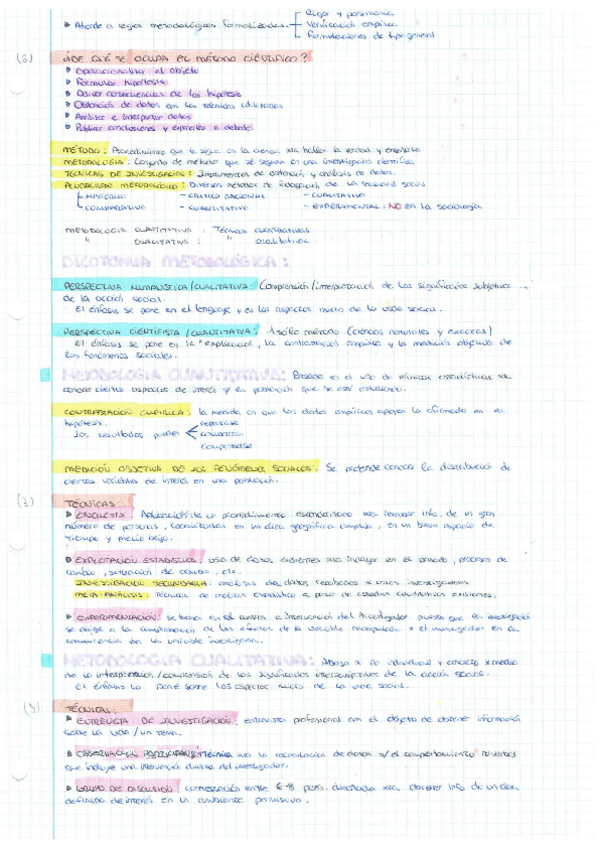 Rigor y parsimonia
▸ Atiende a reglas metodológicas formalizadas. Verificación empírica
Formulaciones de tipo general
(6) ¿DE QUÉ SE OCUPA EL MÉTODO CIENTÍFICO?
▸ Operacionalizar el objeto
▸ Formular hipótesis
▸ Derivar consecuencias de las hipótesis
▸ Obtención de datos con las técnicas utilizadas
▸ Analizar e interpretar datos
▸ Publicar conclusiones y exponerlas a debate
MÉTODO: Procedimiento que se sigue en la ciencia xa hallar la verdad y enseñarla
METODOLOGÍA: Conjunto de métodos que se siguen en una investigación científica.
TÉCNICAS DE INVESTIGACIÓN: Instrumentos de obtención y análisis de datos.
PLURALISMO METODOLÓGICO: Diversos métodos de indagación de la realidad social
HISTÓRICO - CRÍTICO RACIONAL - CUALITATIVO
COMPARATIVO - CUANTITATIVO - EXPERIMENTAL: NO en la sociología
METODOLOGÍA CUANTITATIVA: Técnicas cuantitativas
" CUALITATIVA: " cualitativas
DICOTOMIA METODOLÓGICA:
PERSPECTIVA HUMANISTICA/CUALITATIVA: Comprensión/interpretación de los significados subjetivos
de la acción social.
El énfasis se pone en el lenguaje y en los aspectos micro de la vida social.
PERSPECTIVA CIENTIFISTA/CUANTITATIVA: 1 sólo método (ciencias naturales y exactas)
El énfasis se pone en la "explicación", la contrastación empírica y la medición objetiva de
los fenómenos sociales.
METODOLOGIA CUANTITATIVA: Basada en el uso de técnicas estadísticas xa
conocer ciertos aspectos de interés y la población que se está estudiando.
CONTRASTACIÓN EMPÍRICA: la medida en que los datos empíricos apoyan lo afirmado en la
hipótesis.
Los resultados pueden
MEDICIÓN OBJETIVA DE LOS FENÓMENOS SOCIALES. Se pretende conocer la distribución de
ciertas variables de interés en una población.
(3) TÉCNICAS
▸ ENCUESTA: Aplicación de un procedimiento estandarizado xa recabar info. de un gran
número de personas, localizadas en un área geográfica amplia, en un breve espacio de
tiempo y medio bajo.
▸ EXPLOTACIÓN ESTADÍSTICA: uso de datos existentes xa indagar en el pasado, procesos de
cambio, situación de cosas, etc.
INVESTIGACIÓN SECUNDARIA: análisis de datos recabados x otros investigadores
META-ANÁLISIS: Técnicas de análisis estadístico a partir de estudios cualitativos existentes.
▸ EXPERIMENTACIÓN: se basa en el control e intervención del investigador puesto que la investigación
se dirige a la comprobación de los efectos de la variable manipulada x el investigador en la
METODOLOGIA CUALITATIVA: Aboga x lo individual y concreto x medio
de la interpretación/comprensión de los significados intersubjetivos de la acción social.
El énfasis lo pone sobre los aspectos micro de la vida social.
(3) TÉCNICAS.
▸ ENTREVISTA DE INVESTIGACIÓN: entrevista profesional con el objeto de obtener información
sobre la vida/un tema.
▸ OBSERVACIÓN PARTICIPANTE: técnica xa la recolección de datos s/el comportamiento
que incluye una intervención directa del investigador.
▸ GRUPO DE DISCUSIÓN: conversación entre 6-8 pers. diseñada xa obtener info de un área
definida de interés en un ambiente permisivo.